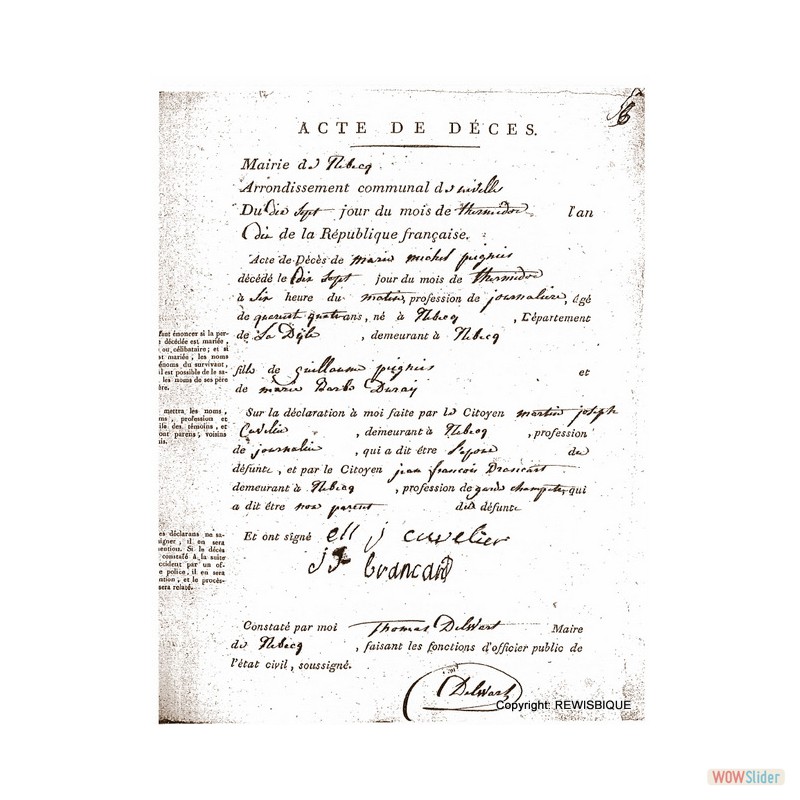 ACTE DE DÉCES.
Mairie de Rebecq
Arrondissement communal de nivelles
Du dix sept jour du mois de thermidor l'an
dix de la République française.
Acte de Décès de marie michel pignies
décédé le dix sept jour du mois de thermidor
à six heure du matin, profession de journaliere, âgé
de quarent quatre ans, né à Rebecq , Département
de La Dyle , demeurant à Rebecq
fille de guillaume pignies et
de marie Barbe Duray
Sur la déclaration à moi faite par le Citoyen martin joseph
Cuvelier , demeurant à Rebecq , profession
de journalier , qui a dit être l'epoux de
défunte, et par le Citoyen jean francois Brancart
demeurant à Rebecq , profession de garde champeter, qui
a dit être non parent de la défunte
Et ont signé j cuvelier
j f brancart
Constaté par moi Thomas Delwart Maire
de Rebecq , faisant les fonctions d'officier public de
l'état civil, soussigné.
Delwart
faut énoncer si la per-
décédée est mariée,
ou célibataire; et si
st mariée, les noms
énoms du survivant,
il est possible de le sa-
les noms de ses père
ère.
mettra les noms,
ms, profession et
ile des témoins, et
ont parens, voisins
is.
es déclarans ne sa-
signer, il en sera
mention. Si le décès
constaté à la suite
ccident par un of-
e police, il en sera
ntion, et le procès-
sera relaté.
Copyright: REWISBIQUE
WOWSlider